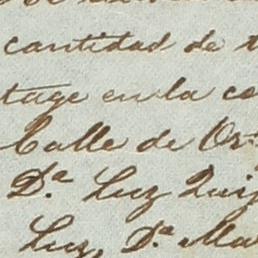 cantidad de t
tuge en la ca
Calle de Or
D.ª Luz Quij
Luz, D.ª Ma